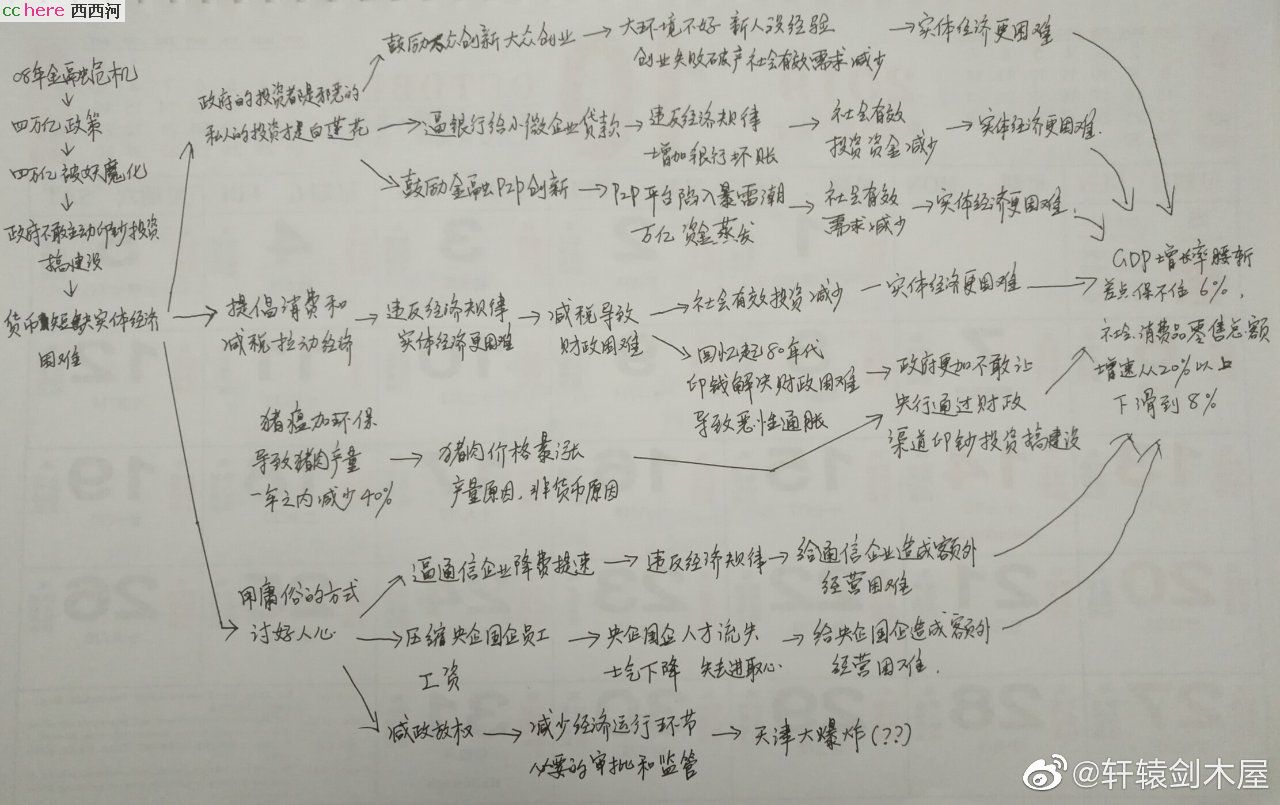 cchere 西西河
08年金融危机
四万亿政策
四万亿被妖魔化
政府不敢主动印钞投资
搞建设
货币短缺实体经济
困难
政府的投资都是邪恶的
私人的投资才是白莲花
鼓励大众创新大众创业
大环境不好 新人没经验
创业失败破产社会有效需求减少
实体经济更困难
逼银行给小微企业贷款
违反经济规律
增加银行坏账
社会有效
投资资金减少
实体经济更困难.
鼓励金融P2P创新
P2P平台陷入暴雷潮
万亿资金蒸发
社会有效
需求减少
实体经济更困难.
提倡消费和
减税拉动经济
违反经济规律
实体经济更困难
减税导致
财政困难
社会有效投资减少
实体经济更困难
回忆起80年代
印钱解决财政困难
导致恶性通胀
政府更加不敢让
央行通过财政
渠道印钞投资搞建设
猪瘟加环保
导致猪肉产量
一年之内减少40%
猪肉价格暴涨
产量原因,非货币原因
用庸俗的方式
讨好人心
逼通信企业降费提速
违反经济规律
给通信企业造成额外
经营困难
压缩央企国企员工
工资
央企国企人才流失
士气下降 失去进取心
给央企国企造成额外
经营困难.
减政放权
减少经济运行环节
必要的审批和监管
天津大爆炸(??)
GDP增长率腰斩
差点保不住6%,
社会消费品零售总额
增速从20%以上
下滑到8%
@轩辕剑木屋